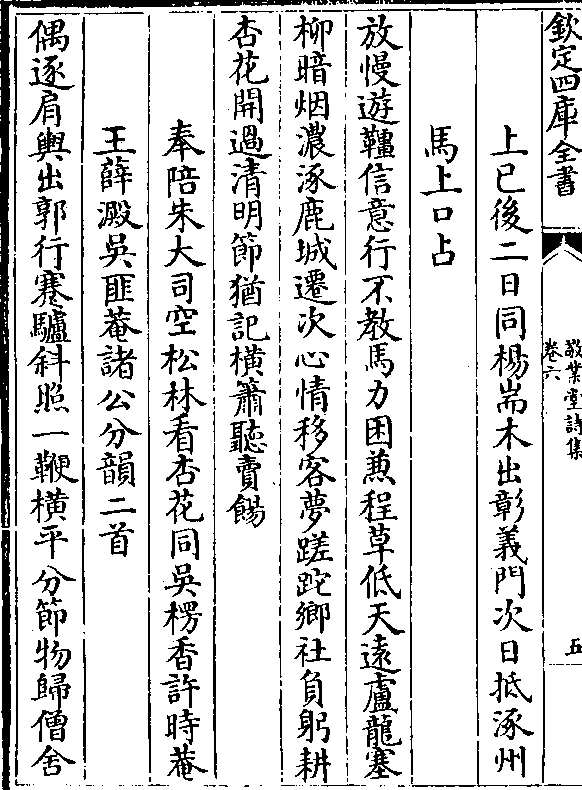 欽定四庫全書
敬業堂詩集
卷六
五
上巳後二日同楊耑木出彰義門次日抵涿州
馬上口占
放慢遊韁信意行不教馬力困兼程草低天遠盧龍塞
柳暗烟濃涿鹿城遷次心情移客夢蹉跎鄉社負躬耕
杏花開過清明節猶記橫簫聽賣餳
奉陪朱大司空松林看杏花同吳楞香許時菴
王薛澱吳匪菴諸公分韻二首
偶逐肩輿出郭行蹇驢斜照一鞭橫平分節物歸僧舍